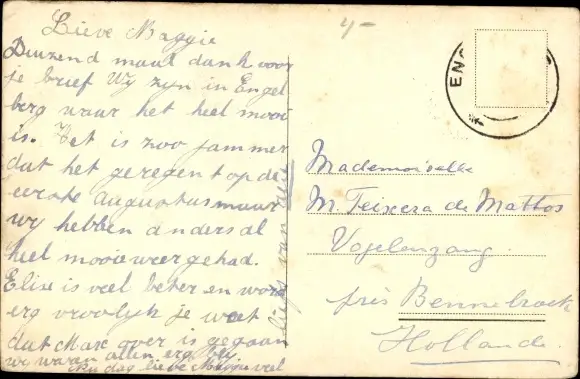 Lieve Maggie
Duizend maal dank voor
je brief Wy zyn in Engel
berg waar het heel mooi
is. Het is zoo jammer
dat het geregent op de
eerste Augustus maar
wy hebben anders al
heel mooie weer gehad.
Elise is veel beter en word
erg vroolyk je weet
dat Max over is gegaan
wy waren allen erg bly
dag lieve Maggie veel
liefs van
4-
ENG
Mademoiselle
M Teixera de Mattos
Vogelenzang.
près Bennebroek
Hollande.